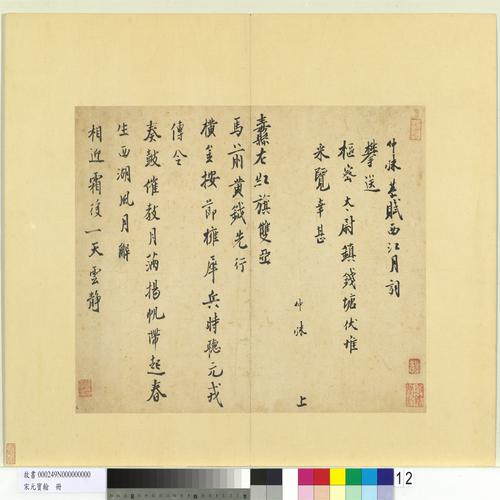 仲殊恭賦西江月詞
攀送
樞密大尉鎮錢塘伏惟
采覽幸甚
仲殊 上
纛左紅旗雙亞
馬前黃鉞先行
橫金按節擁犀兵時聽元戎
傳令
奏鼓催教月滿揚帆帶起春
生西湖風月解
相迎霜後一天雲靜
故書000249N000000000
宋元寶翰 冊
12